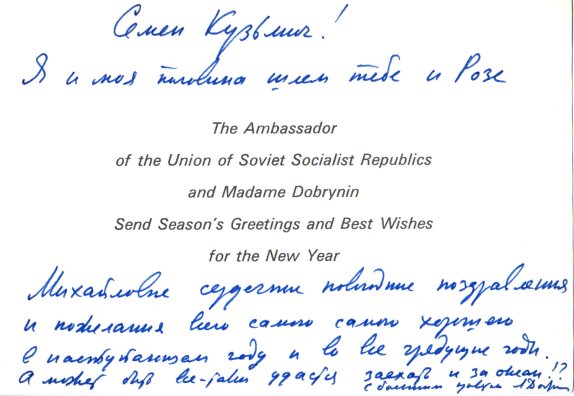 Семен Кузьмич!
Я и моя половина шлем тебе и Розе
The Ambassador
of the Union of Soviet Socialist Republics
and Madame Dobrynin
Send Season's Greetings and Best Wishes
for the New Year
Михайловне сердечные новогодние поздравления
и пожелания всего самого самого хорошего
в наступающем году и во все грядущие годы.
А может быть все-таки удастся заехать и за океан!?
с большим приветом А Добрынин